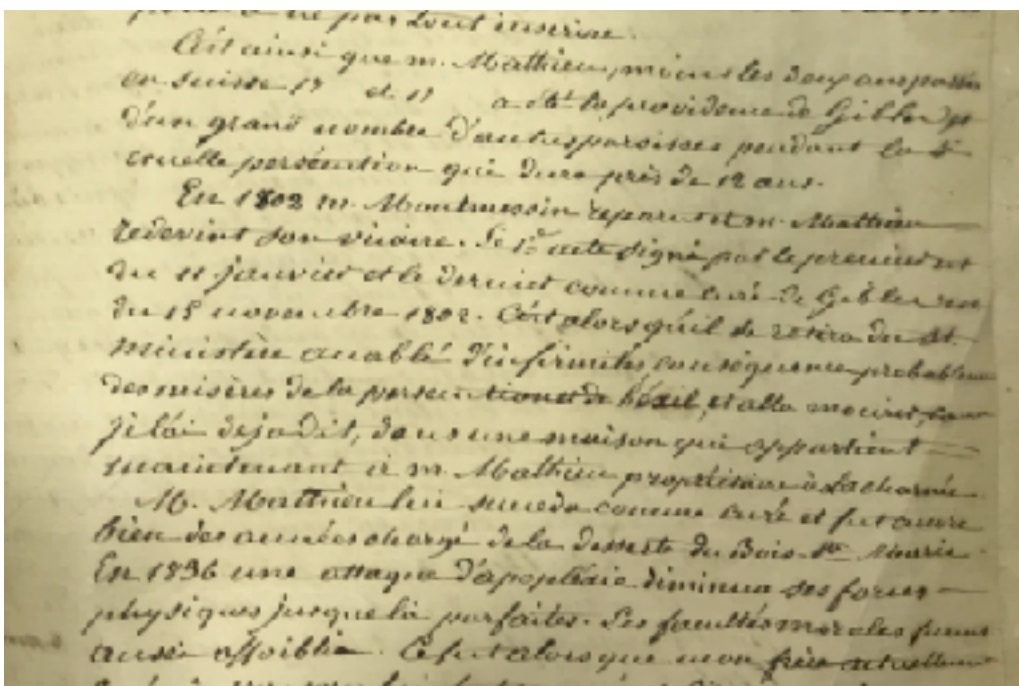 ne partout inserine.
C'est ainsi que m. Mathieu, moins les deux ans passés
en Suisse 17 et 17 a été la providence de Gibles et
d'un grand nombre d'autres paroisses pendant la
cruelle persécution qui dura près de 12 ans.
En 1802 m. Montmessin reparut et m. Mathieu
redevint son vicaire. Le 1er acte signé par le premier est
du 11 janvier et le dernier comme curé de Gibles est
du 15 novembre 1802. C'est alors qu'il se retira du St
ministère accablé d'infirmités conséquence probable
des misères de la persécution et de l'éxil, et alla mourir,
je l'ai deja dit, dans une maison qui appartient
maintenant à m. Mathieu propriétaire à
M. Matthieu lui succeda comme curé et fut
bien des années chargé de la desserte du Bois-Ste Marie
En 1836 une attaque d'apoplexie diminua ses forces
physiques jusque là parfaites. Ses facultés morales furent
aussi affaiblies. Ce fut alors que mon frère actuellement